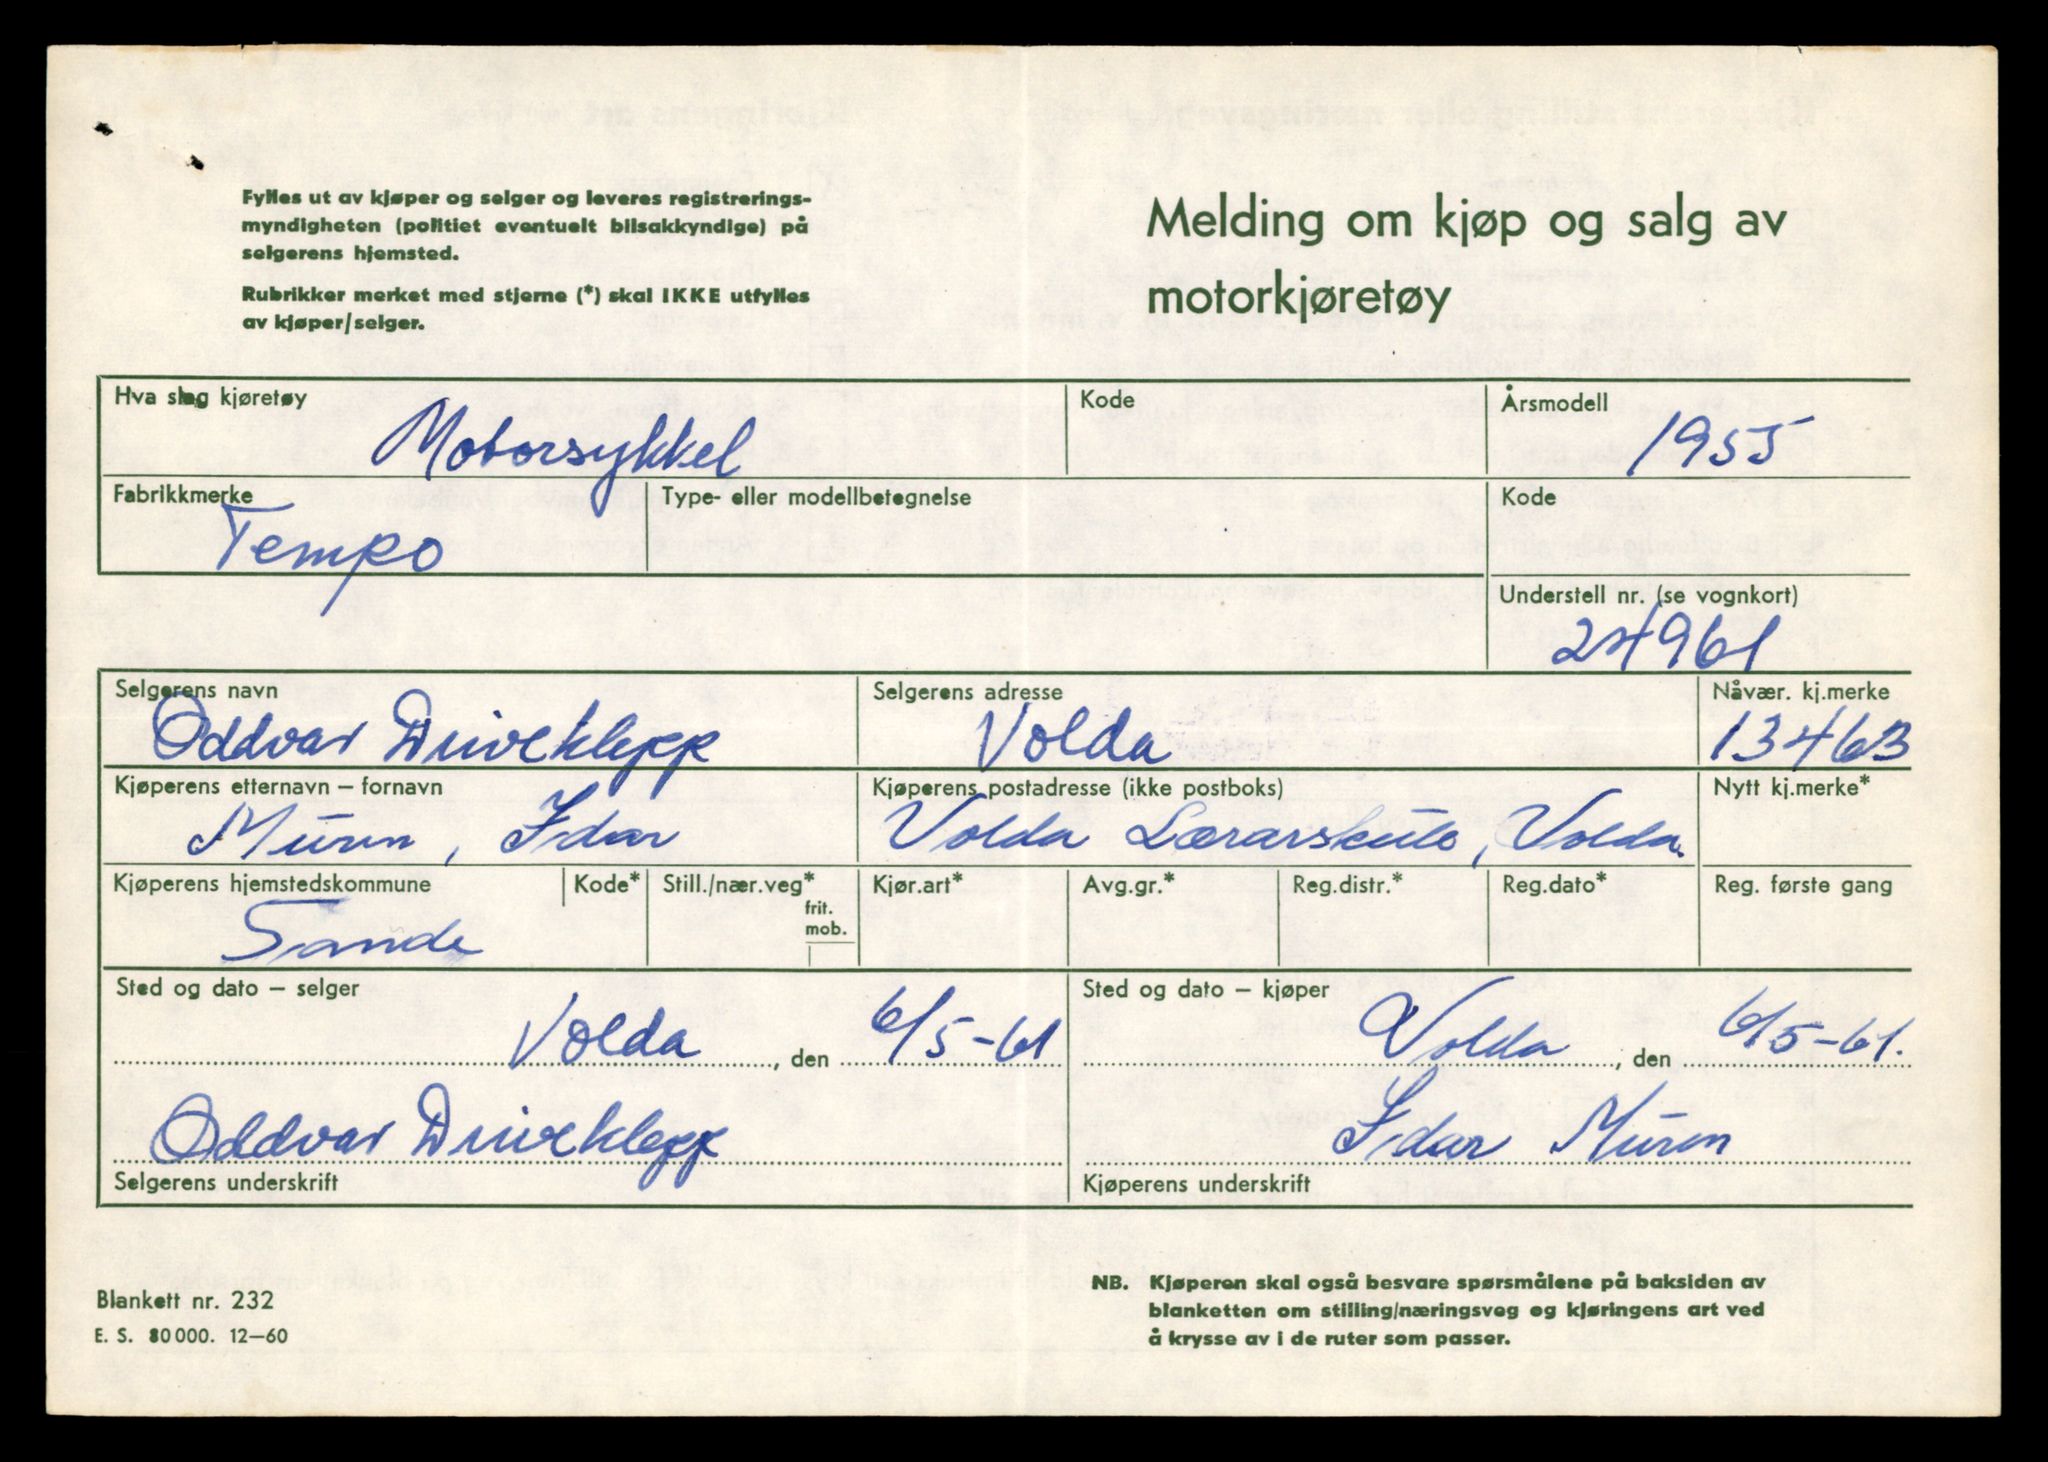 Fylles ut av kjøper og selger og leveres registrerings-
myndigheten (politiet eventuelt bilsakkyndige) på
selgerens hjemsted.
Rubrikker merket med stjerne (*) skal IKKE utfylles
av kjøper/selger.
Melding om kjøp og salg av
motorkjøretøy
Hva slag kjøretøy
Motorsykkel
Kode
Årsmodell
1955
Fabrikkmerke
Tempo
Type- eller modellbetegnelse
Kode
Understell nr. (se vognkort)
24961
Selgerens navn
Oddvar Driveklepp
Selgerens adresse
Volda
Nåvær. kj.merke
13463
Kjøperens etternavn – fornavn
Muren, Idar
Kjøperens postadresse (ikke postboks)
Volda Lærarskule, Volda.
Nytt kj.merke*
Kjøperens hjemstedskommune
Sande
Kode*
Still./nær.veg*
frit.
mob.
Kjør.art*
Avg.gr.*
Reg.distr.*
Reg.dato*
Reg. første gang
Sted og dato – selger
Volda, den 6/5-61
Sted og dato – kjøper
Volda, den 6/5-61.
Oddvar Driveklepp
Selgerens underskrift
Idar Muren
Kjøperens underskrift
Blankett nr. 232
E. S. 80000. 12–60
NB. Kjøperen skal også besvare spørsmålene på baksiden av
blanketten om stilling/næringsveg og kjøringens art ved
å krysse av i de ruter som passer.